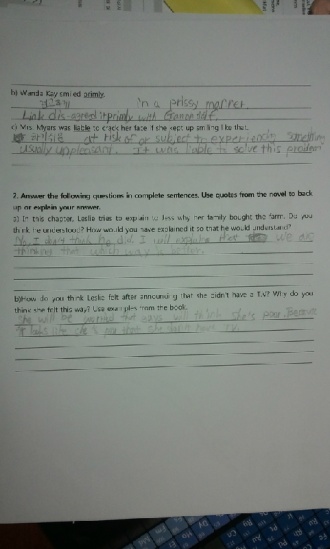 b) Wanda Kay smiled primly.
in a prissy manner.
Link dis-agreed primly with Ganondorf.
c) Mrs. Myers was liable to crack her face if she kept up smiling like that.
at risk of or subject to experiencing something
usually unpleasant. It was liable to solve this problem
2. Answer the following questions in complete sentences. Use quotes from the novel to back
up or explain your answer.
a) In this chapter, Leslie tries to explain to Jess why her family bought the farm. Do you
think he understood? How would you have explained it so that he would understand?
No, I don't think he did. I will explain that we are
thinking that which way is better.
b)How do you think Leslie felt after announcing that she didn't have a T.V? Why do you
think she felt this way? Use examples from the book.
She will be worried the guys will think she's poor. Because
it looks like she's poor that she didn't have T.V.